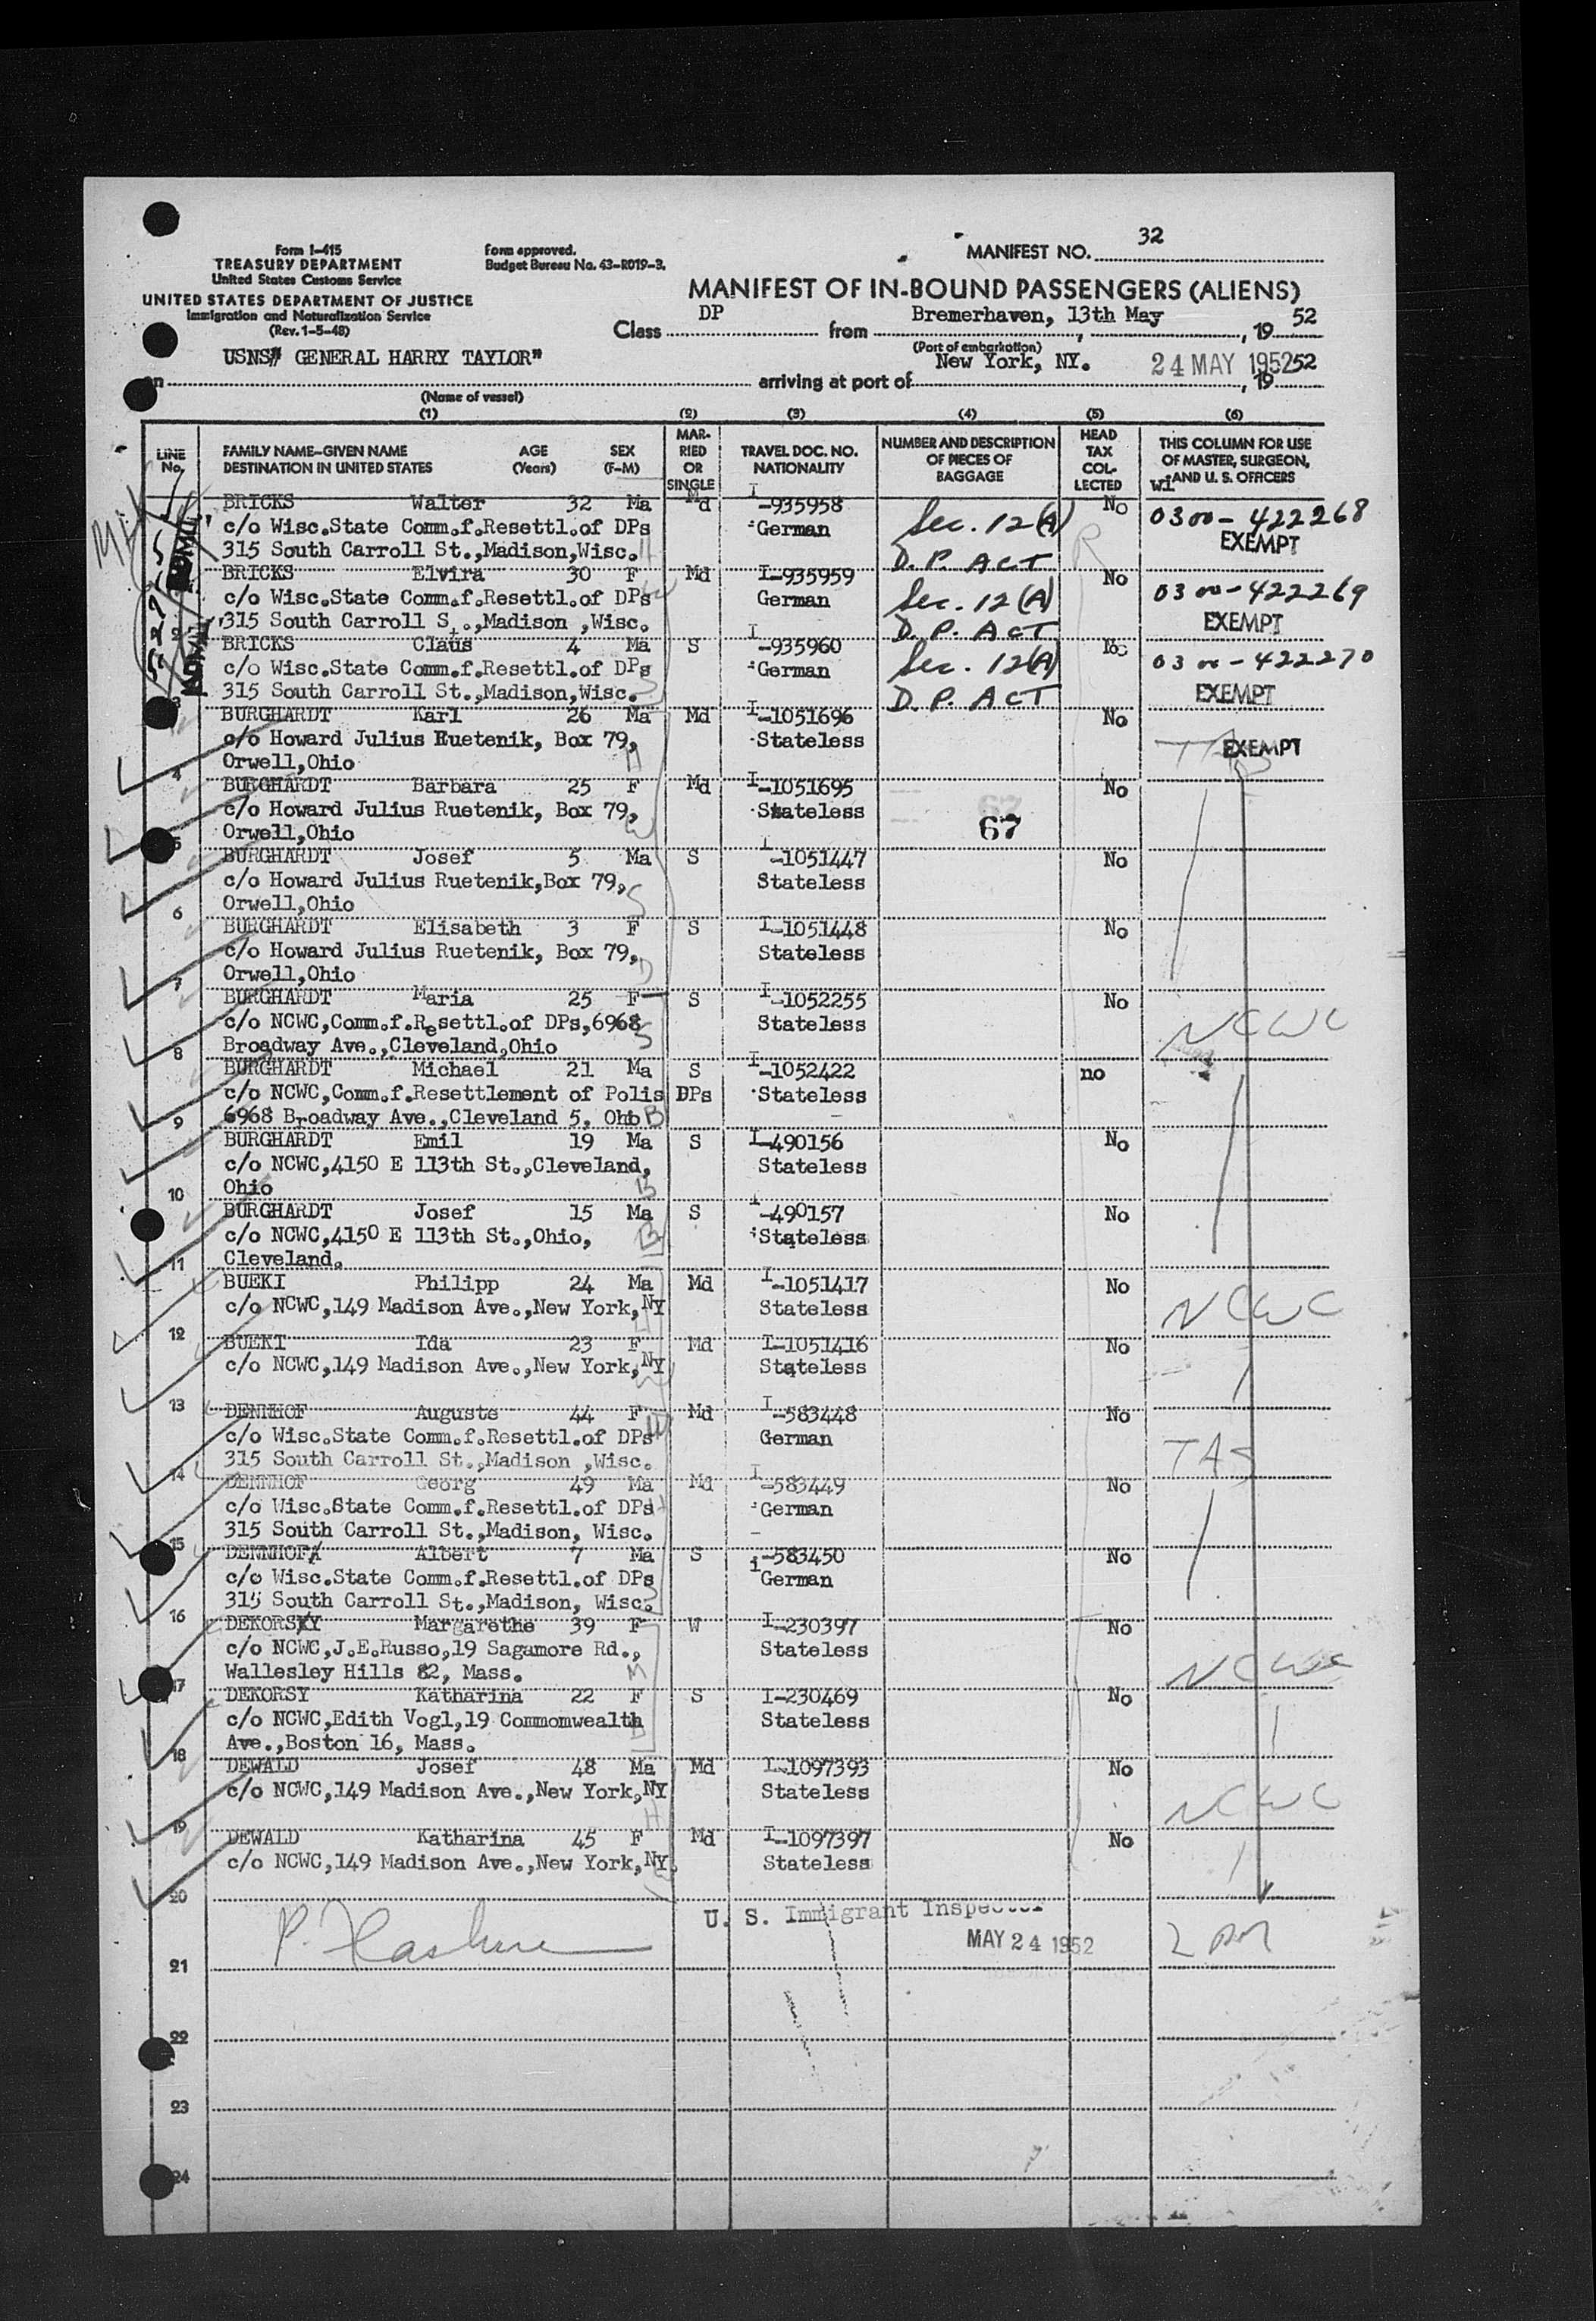 MANIFEST NO. 32
Form I-415
TREASURY DEPARTMENT
United States Customs Service
UNITED STATES DEPARTMENT OF JUSTICE
Immigration and Naturalization Service
(Rev. 1-5-48)
Form approved.
Budget Bureau No. 43-R019-3.
MANIFEST OF IN-BOUND PASSENGERS (ALIENS)
Class DP from Bremerhaven, 13th May, 1952
(Port of embarkation)
USNS" GENERAL HARRY TAYLOR"
on arriving at port of New York, NY. 24 MAY 1952, 1952
(Name of vessel)
(1) (2) (3) (4) (5) (6)
LINE No. FAMILY NAME-GIVEN NAME DESTINATION IN UNITED STATES AGE (Years) SEX (F-M) MARRIED OR SINGLE TRAVEL DOC. NO. NATIONALITY NUMBER AND DESCRIPTION OF PIECES OF BAGGAGE HEAD TAX COLLECTED THIS COLUMN FOR USE OF MASTER, SURGEON, AND U. S. OFFICERS
BRICKS Walter 32 Ma Md I-935958 No
c/o Wisc.State Comm.f.Resettl.of DPs German Sec. 12(A) 0300-422268
315 South Carroll St.,Madison,Wisc. D. P. ACT EXEMPT
BRICKS Elvira 30 F Md I-935959 No
c/o Wisc.State Comm.f.Resettl.of DPs German Sec. 12(A) 0300-422269
2 315 South Carroll St.,Madison ,Wisc. D. P. ACT EXEMPT
BRICKS Claus 4 Ma S I-935960 No
c/o Wisc.State Comm.f.Resettl.of DPs German Sec. 12(A) 0300-422270
3 315 South Carroll St.,Madison,Wisc. D. P. ACT EXEMPT
BURGHARDT Karl 26 Ma Md I-1051696 No
c/o Howard Julius Ruetenik, Box 79, Stateless EXEMPT
4 Orwell,Ohio
BURGHARDT Barbara 25 F Md I-1051695 No
c/o Howard Julius Ruetenik, Box 79, Stateless 67
5 Orwell,Ohio
BURGHARDT Josef 5 Ma S I-1051447 No
c/o Howard Julius Ruetenik,Box 79, Stateless
6 Orwell,Ohio
BURGHARDT Elisabeth 3 F S I-1051448 No
c/o Howard Julius Ruetenik, Box 79, Stateless
7 Orwell,Ohio
BURGHARDT Maria 25 F S I-1052255 No
c/o NCWC,Comm.f.Resettl.of DPs,6968 Stateless NCWC
8 Broadway Ave.,Cleveland,Ohio
BURGHARDT Michael 21 Ma S I-1052422 no
c/o NCWC,Comm.f.Resettlement of Polis DPs Stateless
9 6968 Broadway Ave.,Cleveland 5, Ohio
BURGHARDT Emil 19 Ma S I-490156 No
c/o NCWC,4150 E 113th St.,Cleveland, Stateless
10 Ohio
BURGHARDT Josef 15 Ma S I-490157 No
c/o NCWC,4150 E 113th St.,Ohio, Stateless
11 Cleveland.
BUEKI Philipp 24 Ma Md I-1051417 No
c/o NCWC,149 Madison Ave.,New York,NY Stateless NCWC
12
BUEKI Ida 23 F Md I-1051416 No
c/o NCWC,149 Madison Ave.,New York,NY Stateless
13
DENNHOF Auguste 44 F Md I-583448 No
c/o Wisc.State Comm.f.Resettl.of DPs German TAS
14 315 South Carroll St.,Madison ,Wisc.
DENNHOF Georg 49 Ma Md I-583449 No
c/o Wisc.State Comm.f.Resettl.of DPs German
15 315 South Carroll St.,Madison, Wisc.
DENNHOF Albert 7 Ma S i-583450 No
c/o Wisc.State Comm.f.Resettl.of DPs German
16 315 South Carroll St.,Madison, Wisc.
DEKORSY Margarethe 39 F W I-230397 No
c/o NCWC,J.E.Russo,19 Sagamore Rd., Stateless NCWC
17 Wallesley Hills 82, Mass.
DEKORSY Katharina 22 F S I-230469 No
c/o NCWC,Edith Vogl,19 Commomwealth Stateless
18 Ave.,Boston 16, Mass.
DEWALD Josef 48 Ma Md I-1097393 No
c/o NCWC,149 Madison Ave.,New York,NY Stateless NCWC
19
DEWALD Katharina 45 F Md I-1097397 No
c/o NCWC,149 Madison Ave.,New York,NY. Stateless
20
U. S. Immigrant Inspector
MAY 24 1952 2 PM
21
22
23
24